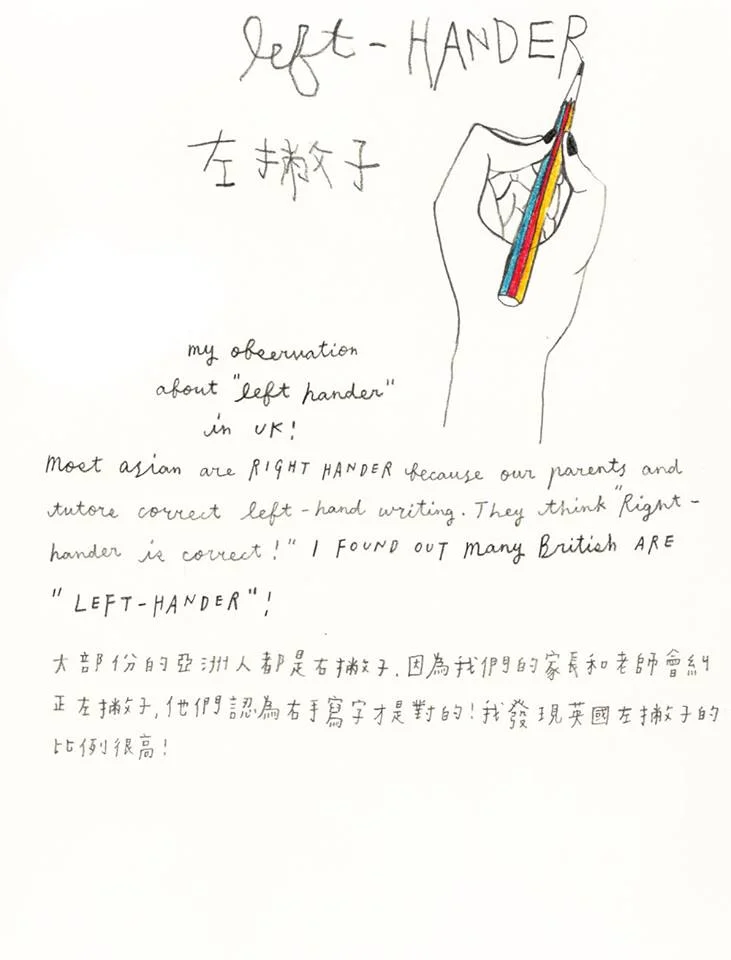 left-HANDER
左撇子
my observation
about "left hander"
in UK!
Most asian are RIGHT HANDER because our parents and
tutors correct left-hand writing. They think "Right-
hander is correct!" I FOUND OUT Many British ARE
"LEFT-HANDER"!
大部份的亞洲人都是右撇子, 因為我們的家長和老師會糾
正左撇子, 他們認為右手寫字才是對的! 我發現英國左撇子的
比例很高!